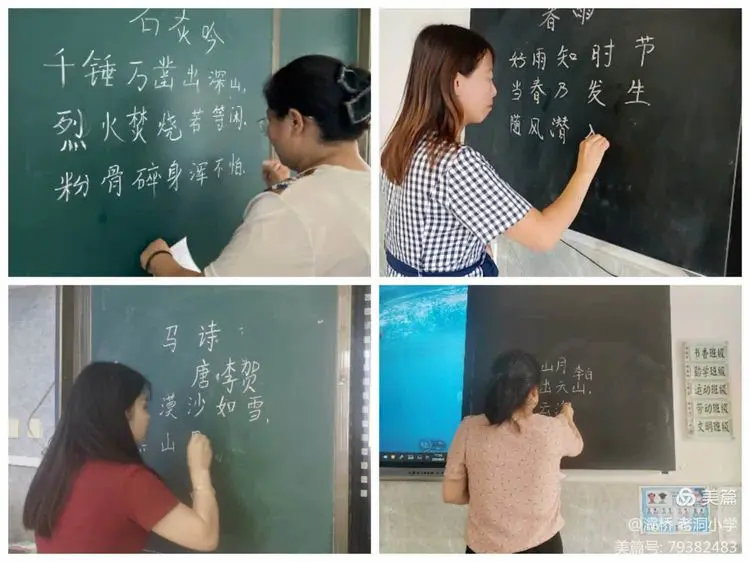 石灰吟
千锤万凿出深山,
烈火焚烧若等闲.
粉骨碎身浑不怕.
春雨
好雨知时节
当春乃发生
随风潜入
马诗
唐·李贺
漠沙如雪,
山
山月 李白
出天山,
云
书香班级
勤学班级
运动班级
劳动班级
文明班级
美篇
@灞桥 老洞小学
美篇号: 79382483